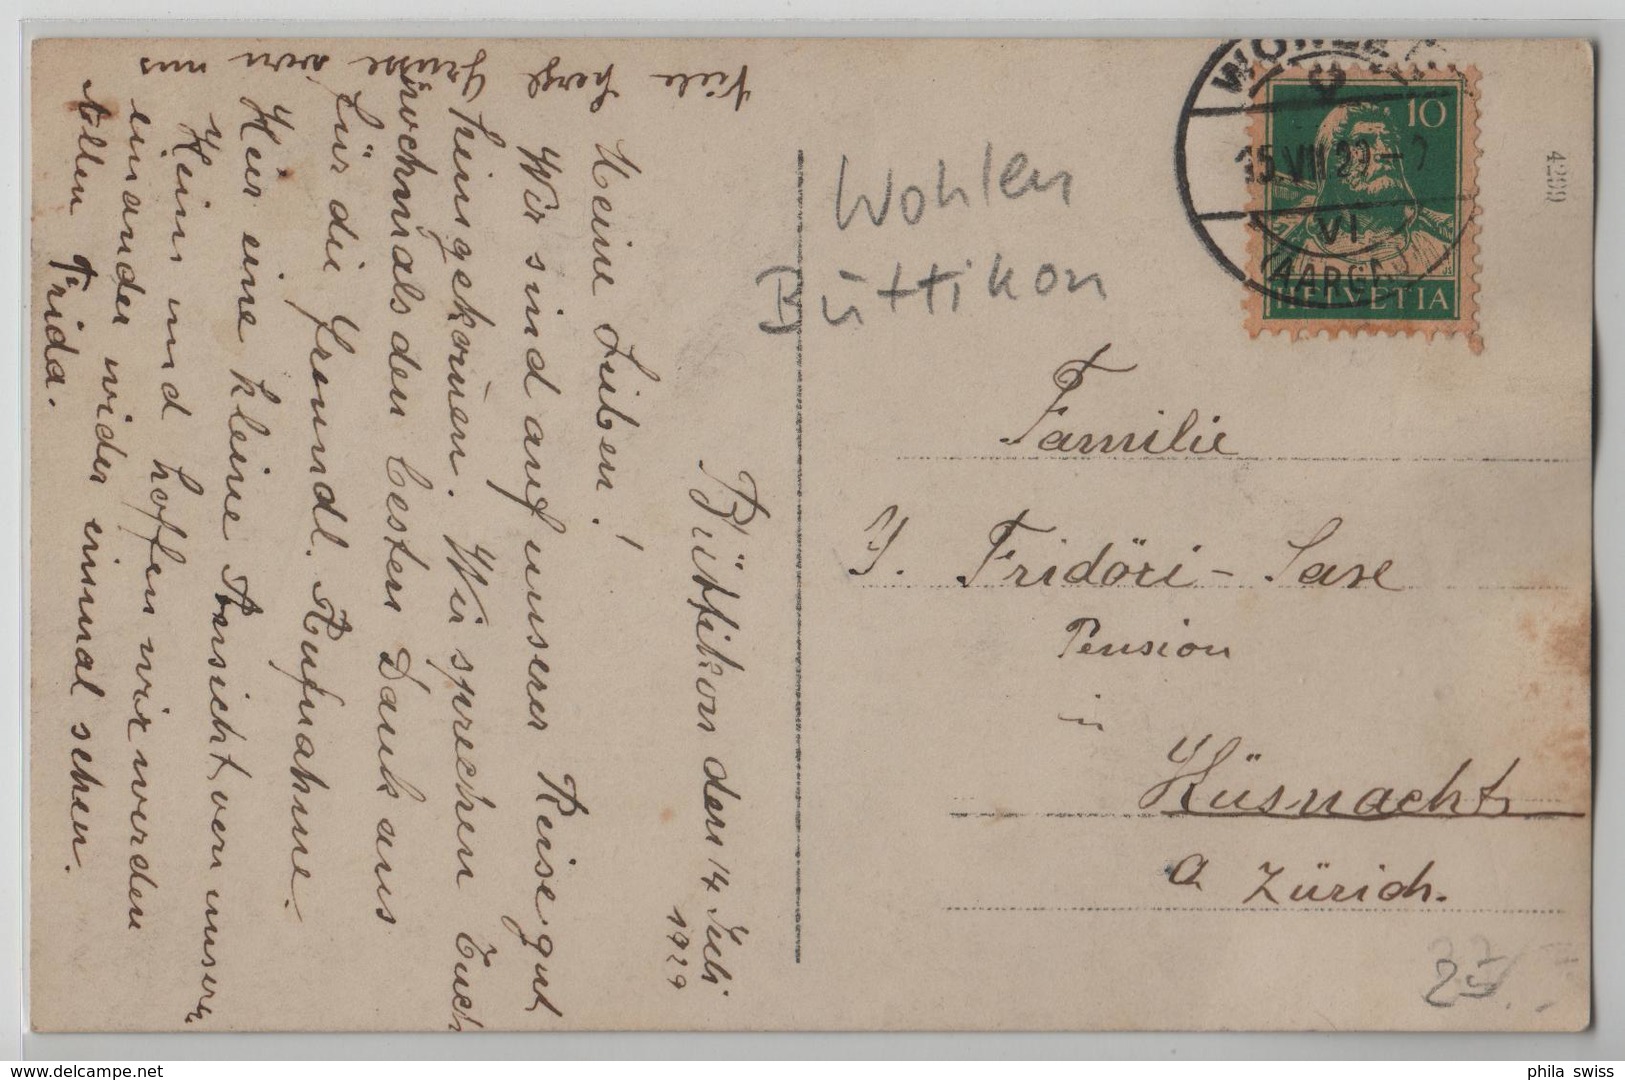 Büttikon den 14 Juli
1929
Meine Lieben!
Wir sind auf unserer Reise gut
heimgekom̄en. Wir sprechen Euch
nochmals den besten Dank aus
für die freundl. Aufnahme.
Hier eine kleine Ansicht von unserm
Heim und hoffen wir werden
einander wider einmal sehen.
Viele herzl Grüsse von uns
Allen Frida.
Wohlen
Büttikon
WOHLEN
15.VII.29
VI
(AARGAU)
10
HELVETIA
4299
Familie
J. Fridöri - Saxe
Pension
in
Küsnacht
a Zürich.
phila swiss
www.delcampe.net